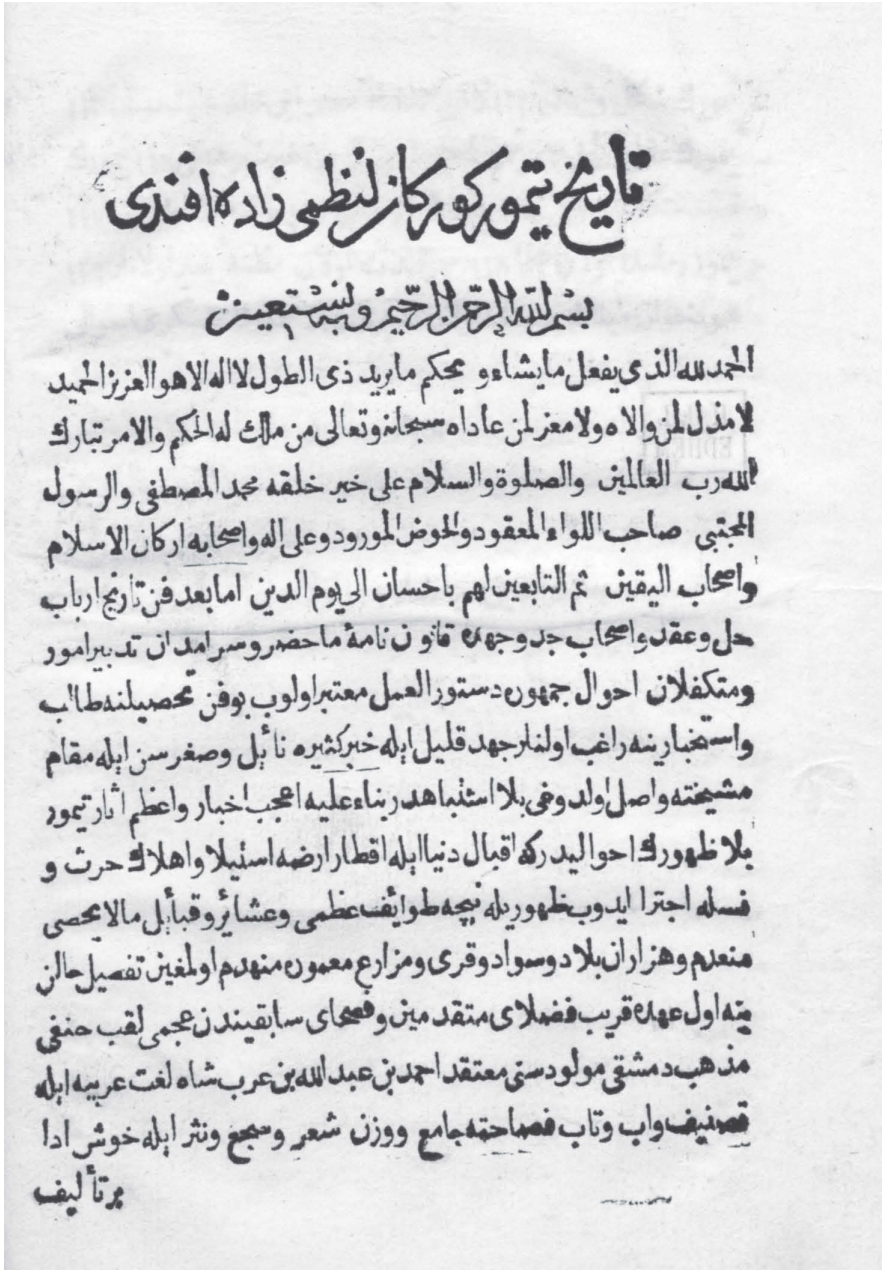 تاريخ تيمور كوركان لنظمى زاده افندى
بسم الله الرحمن الرحيم وبه نستعين
الحمد لله الذى يفعل ما يشاء و يحكم ما يريد ذى الطول لا اله الا هو العزيز الحميد
لا مذل لمن والاه ولا معز لمن عاداه سبحانه وتعالى من ملك له الحكم والامر تبارك
الله رب العالمين والصلوة والسلام على خير خلقه محمد المصطفى والرسول
المجتبى صاحب اللواء المعقود والحوض المورود وعلى اله واصحابه اركان الاسلام
واصحاب اليقين ثم التابعين لهم باحسان الى يوم الدين اما بعد فن تاريخ ارباب
حل وعقد واصحاب جد وجهده قانون نامۀ ما حضر وسرامدان تدبير امور
ومتكفلان احوال جمهوره دستور العمل معتبر اولوب بو فن تحصيلنه طالب
واستخبارينه راغب اولنلر جهد قليل ايله خبر كثيره نائل وصغر سن ايله مقام
مشيخته واصل اولدوغى بلا اشتباهدر بناء عليه اعجب اخبار واعظم اثار تيمور
بلا ظهورك احواليدركه اقبال دنيا ايله اقطار ارضه استيلا واهلاك حرث و
نسله اجترا ايدوب ظهوريله نيچه طوايف عظمى وعشائر وقبائل مالا يحصى
منعدم وهزاران بلاد وسواد وقرى ومزارع معموره منهدم اولمغين تفصيل حالن
ينه اول عهده قريب فضلاى متقدمين وفصحاى سابقيندن عجمى لقب حنفى
مذهب دمشقى مولود سنى معتقد احمد بن عبد الله بن عرب شاه لغت عربيه ايله
تصنيف واب وتاب فصاحته جامع ووزن شعر وسجع ونثر ايله خوش ادا
بر تأليف